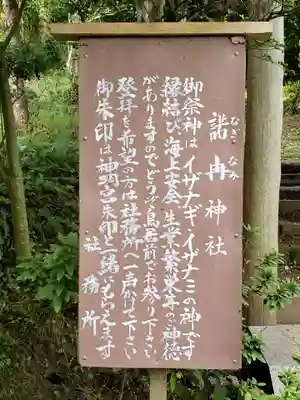 諾冉神社
なぎ なみ
御祭神はイザナギ・イザナミの神です
縁結び 海上安全 生業繁栄等のご神徳
がありますのでどうぞ鳥居前でお参り下さい
登拝を希望の方は社務所へ一声かけて下さい
御朱印は神明宮朱印と一緒にもらえます
社務所